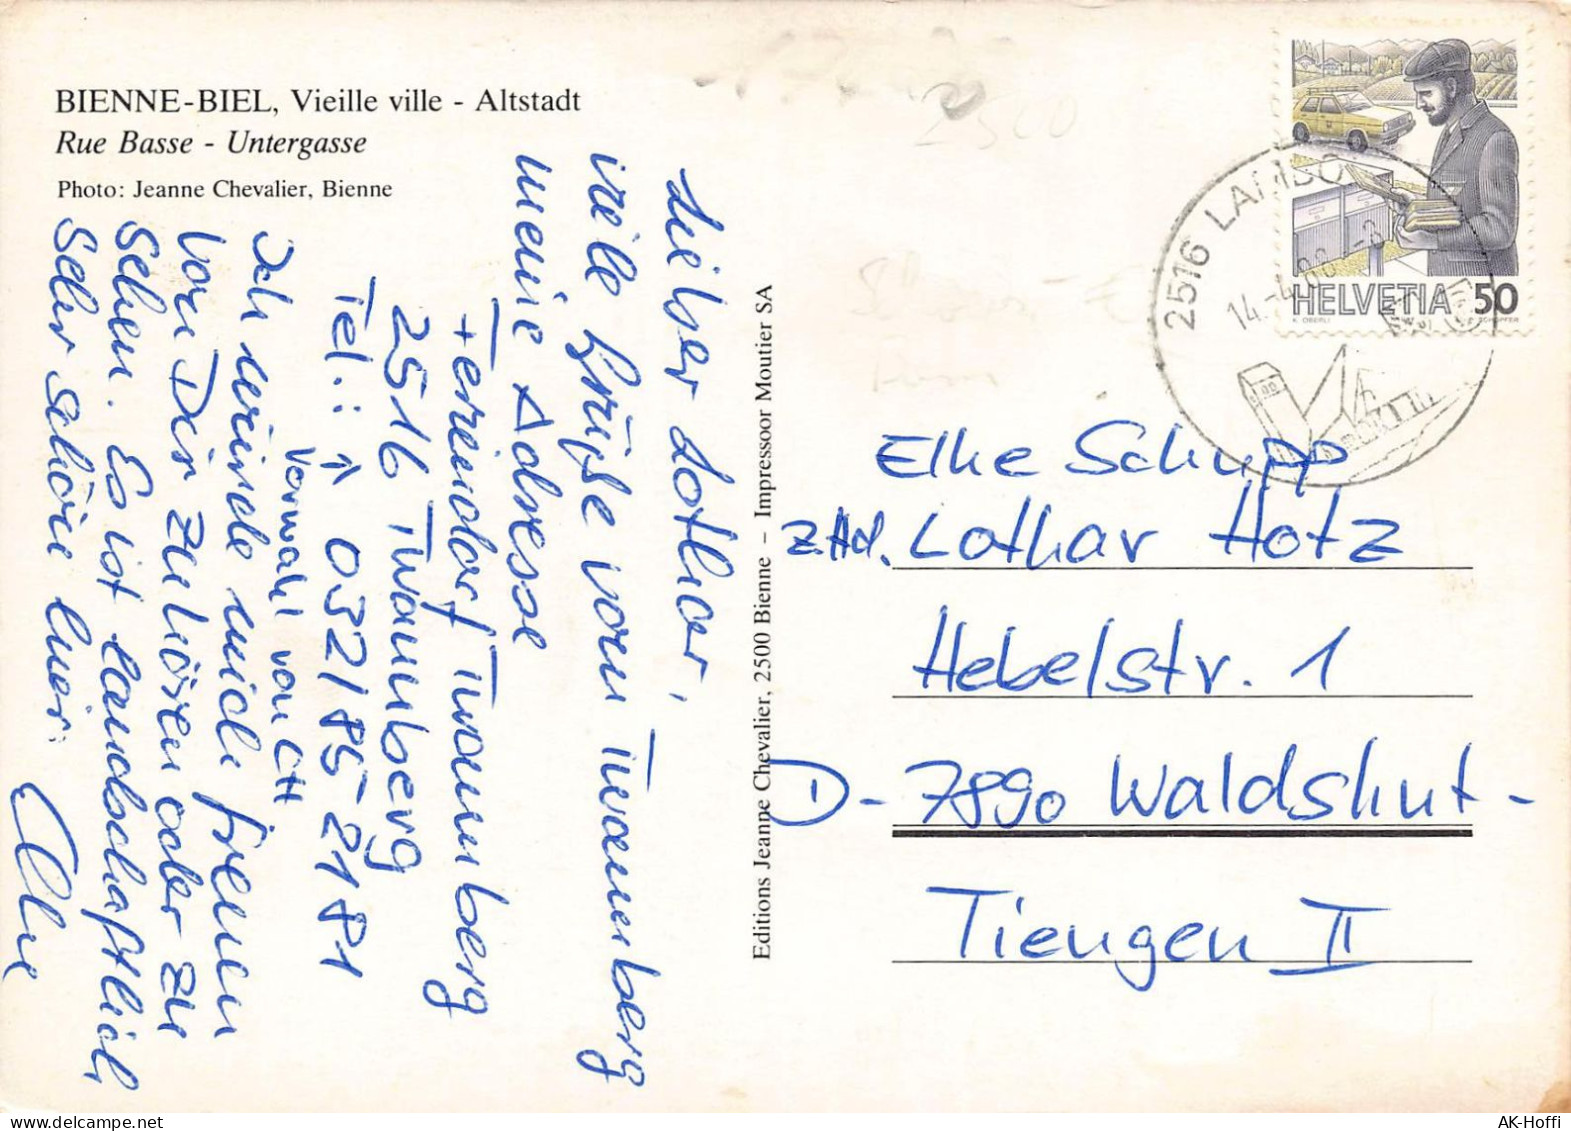 BIENNE-BIEL, Vieille ville - Altstadt
Rue Basse - Untergasse
Photo: Jeanne Chevalier, Bienne
Lieber Lothar,
viele Grüße vom Twannberg
meine Adresse
Feriendorf Twannberg
2516 Twannberg
Tel.: → 032/95 21 81
Vorwahl von CH
Ich würde mich freuen
von Dir zu hören oder zu
sehen. Es ist landschaftlich
sehr schön hier.
Elke
Editions Jeanne Chevalier, 2500 Bienne – Impressoor Moutier SA
2500
HELVETIA 50
K. OBERLI
2516 LAMBO
14.-4.88
Elke Schupp
z.Hd. Lothar Hotz
Hebelstr. 1
D- 7890 Waldshut-
Tiengen II
AK-Hoffi